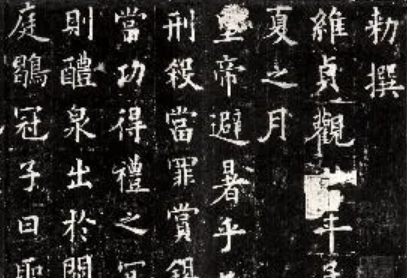 勑撰
維貞觀年
夏之月
帝避暑乎
刑殺當罪賞錫
當功得禮之
則醴泉出於闕
庭鶡冠子曰聖